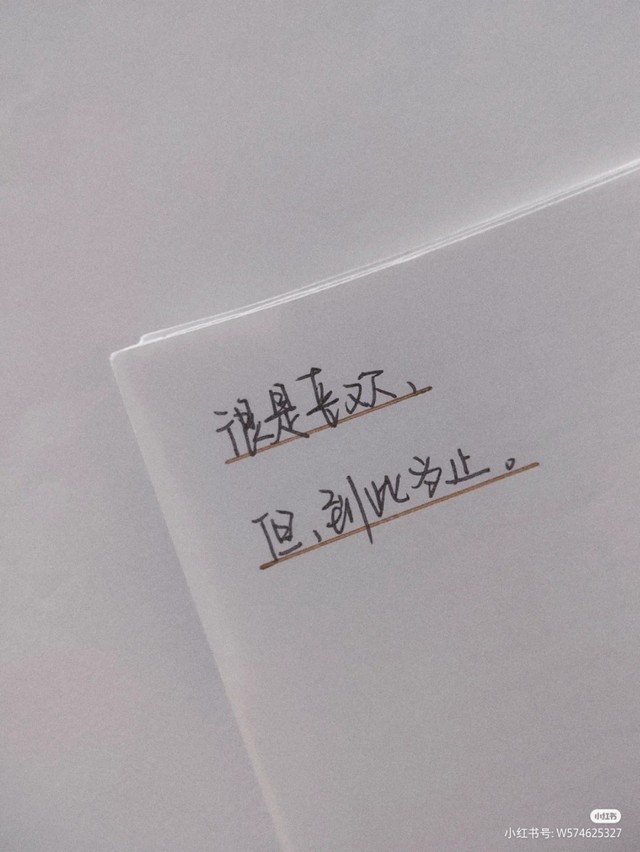 很是喜欢、
但、到此为止。
小红书
小红书号: W574625327